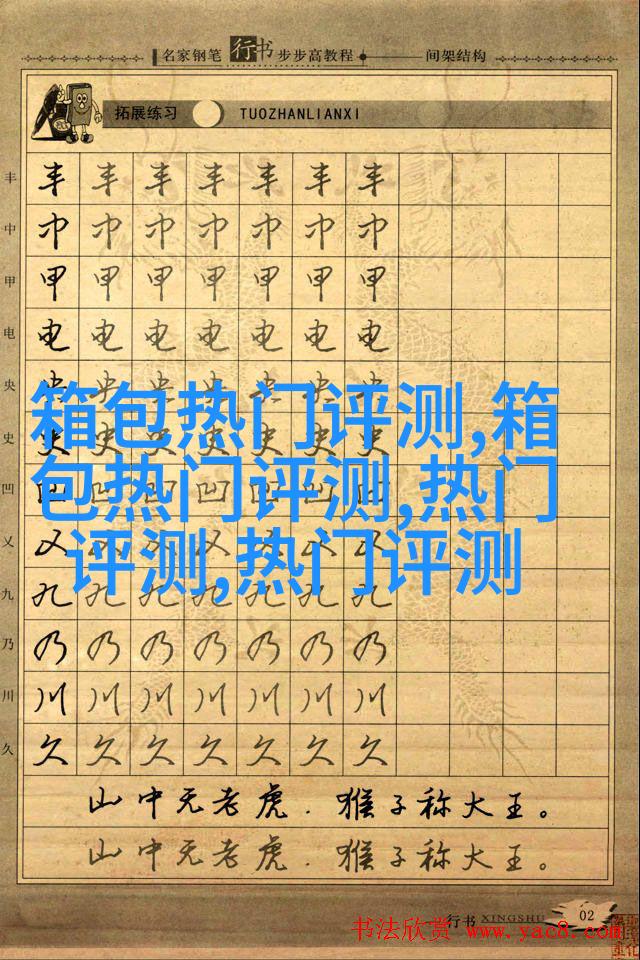 名家钢笔 行书 步步高教程 间架结构
拓展练习 TUOZHANLIANXI
丰 丰 丰 丰 丰 丰 丰 丰
中 中 中 中 中 中 中 中
甲 甲 甲 甲 甲 甲 甲 甲
电 电 电 电 电 电 电 电
央 央 央 央 央 央 央 央
箱包热门评测,箱
史 史 史 史 史 史 史 史
包热门评测,热门
凹 凹 凹 凹 凹 凹 凹 凹
乂 乂 乂 乂 乂 乂 乂 乂
评测,热门评测
九 九 九 九 九 九 九 九
乃 乃 乃 乃 乃 乃 乃 乃
川 川 川 川 川 川 川 川
久 久 久 久 久 久 久 久
山中无老虎．猴子称大王。
山中无老虎．猴子称大王。
行书 XINGSHU 02
书法欣赏 www.yac8.com